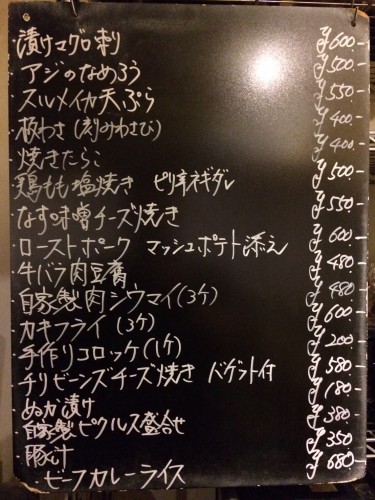 漬けマグロ刺 ¥600.-
・アジのなめろう ¥500.-
・スルメイカ天ぷら ¥550.-
・板わさ(刻みわさび) ¥400.-
・焼きたらこ ¥400.-
・鶏もも塩焼き ピリ辛ネギダレ ¥500.-
・なす味噌チーズ焼き ¥550.-
・ローストポーク マッシュポテト添え ¥600.-
・牛バラ肉豆腐 ¥480.-
・自家製肉シウマイ(3ケ) ¥480.-
・カキフライ(3ケ) ¥600.-
・手作りコロッケ(1ケ) ¥200.-
・チリビーンズチーズ焼き バゲット付 ¥580.-
・ぬか漬け ¥180.-
・自家製ピクルス盛合せ ¥380.-
・豚汁 ¥350.-
・ビーフカレーライス ¥680.-